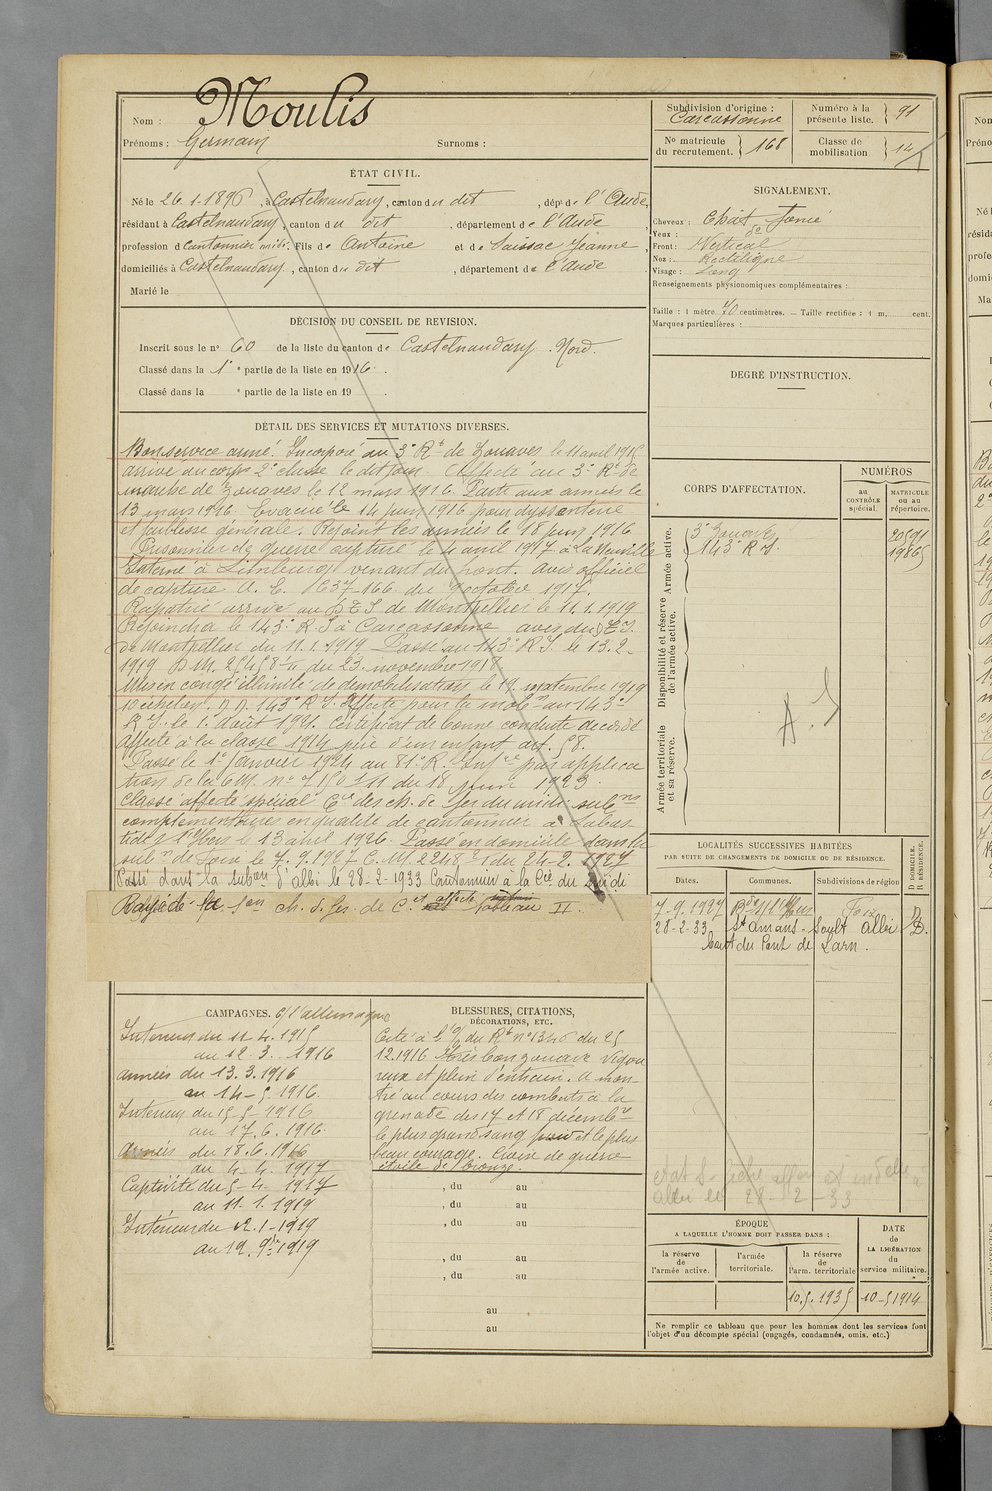 Nom : Moulis
Prénoms : Germain Surnoms :
ÉTAT CIVIL.
Né le 26-1-1896, à Castelnaudary, canton du dit, dépt de l'Aude,
résidant à Castelnaudary, canton du dit, département de l'Aude
profession de Cantonnier midi. Fils de Antoine et de Saissac Jeanne,
domiciliés à Castelnaudary, canton du dit, département de l'Aude
Marié le
DÉCISION DU CONSEIL DE REVISION.
Inscrit sous le n° 60 de la liste du canton de Castelnaudary Nord.
Classé dans la 1e partie de la liste en 1916.
Classé dans la e partie de la liste en 19
DÉTAIL DES SERVICES ET MUTATIONS DIVERSES.
Bon service armé. Incorporé au 3e Rt de Zouaves le 11 avril 1915
arrivé au corps 2e classe le dit jour. Affecté au 3e Rt de
marche de Zouaves le 12 mars 1916. Parti aux armées le
13 mars 1916. Evacué le 14 juin 1916 pour dyssenterie
et faiblesse générale. Rejoint les armées le 18 juin 1916.
Prisonnier de guerre capturé le 4 avril 1917 à La Neuville
Interné à Limburg venant du front. avis officiel
de capture du 9 octobre 1917.
Rapatrié arrivé au D.T.I de Montpellier le 11.1.1919
Rejoindra le 143e R.I à Carcassonne avis du D.T.I.
de Montpellier du 11.1.1919 Passé au 143e R.I. le 13.2-
1919 D.M. du 23 novembre 1918
Mis en congé illimité de démobilisation le 19 septembre 1919
10e échelon. 143e R.I. Affecté pour la mobon au 143e
R.I. le 1e Août 1921. Certificat de bonne conduite accordé
Affecté à la classe 1914 père d'un enfant art. 58.
Passé le 1er Janvier 1924 au 81e R. Infie par applica
tion de la C.M. no 7150 1/11 du 18 juin 1923
Classé affecté spécial Cie des ch. de fer du midi subons
complémentaires en qualité de cantonnier à Labas
tide s/ l'Hers le 13 avril 1926. Passé en domicile dans la
subon de Foix le 7.9.1927 C.M. 2248 1/1 du 24-2.1927
Passé dans la subon d'Albi le 28-2-1933 Cantonnier à la Cie du Midi
Rayé de la Son ch. d. fer de C. et affecté Tableau II.
CAMPAGNES. c/ l'allemagne
Intérieur du 11.4.1915
au 12.3.1916
armées du 13.3.1916
au 14-5.1916.
Intérieur du 15-5-1916
au 17.6.1916.
armées du 18.6.1916
au 4-4.1917
Captivité du 5-4-1917
au 11.1.1919
Intérieur du 12.1-1919
au 19.9bre 1919
BLESSURES, CITATIONS,
DÉCORATIONS, ETC.
Cité à l'O/ du Rt n° 1346 du 25
12.1916 très bon zouave vigou
reux et plein d'entrain. a mon-
tré au cours des combats à la
grenade des 17 et 18 décembre
le plus grand sang froid et le plus
beau courage. Croix de guerre
étoile de bronze.
, du au
, du au
, du au
, du au
, du au
au
au
Subdivision d'origine :
Carcassonne
Numéro à la
présente liste. } 91
N° matricule
du recrutement. } 168
Classe de
mobilisation. } 14
SIGNALEMENT.
Cheveux : Chât foncé
Yeux : do
Front : Vertical
Nez : Rectiligne
Visage : Long
Renseignements physionomiques complémentaires :
Taille : 1 mètre 70 centimètres. — Taille rectifiée : 1 m. cent.
Marques particulières :
DEGRÉ D'INSTRUCTION.
CORPS D'AFFECTATION.
NUMÉROS
au
CONTRÔLE
spécial.
MATRICULE
ou au
répertoire.
Armée active.
3e Zouaves 20591
143e R.I. 19865
Disponibilité et réserve
de l'armée active.
Armée territoriale
et sa réserve.
LOCALITÉS SUCCESSIVES HABITÉES
PAR SUITE DE CHANGEMENTS DE DOMICILE OU DE RÉSIDENCE.
Dates. Communes. Subdivisions de région
D DOMICILE.
R RÉSIDENCE.
7-9.1927 Bde s/ l'Hers Foix D
28-2-33 St Amans-Soult Albi D.
bout du Pont de Larn.
Albi le 28-2-33
ÉPOQUE
A LAQUELLE L'HOMME DOIT PASSER DANS :
la réserve
de
l'armée active.
l'armée
territoriale.
la réserve
de
l'arm. territoriale
DATE
de
LA LIBÉRATION
du
service militaire.
10.5.1935 10-5 1914
Ne remplir ce tableau que pour les hommes dont les services font
l'objet d'un décompte spécial (engagés, condamnés, omis, etc.)